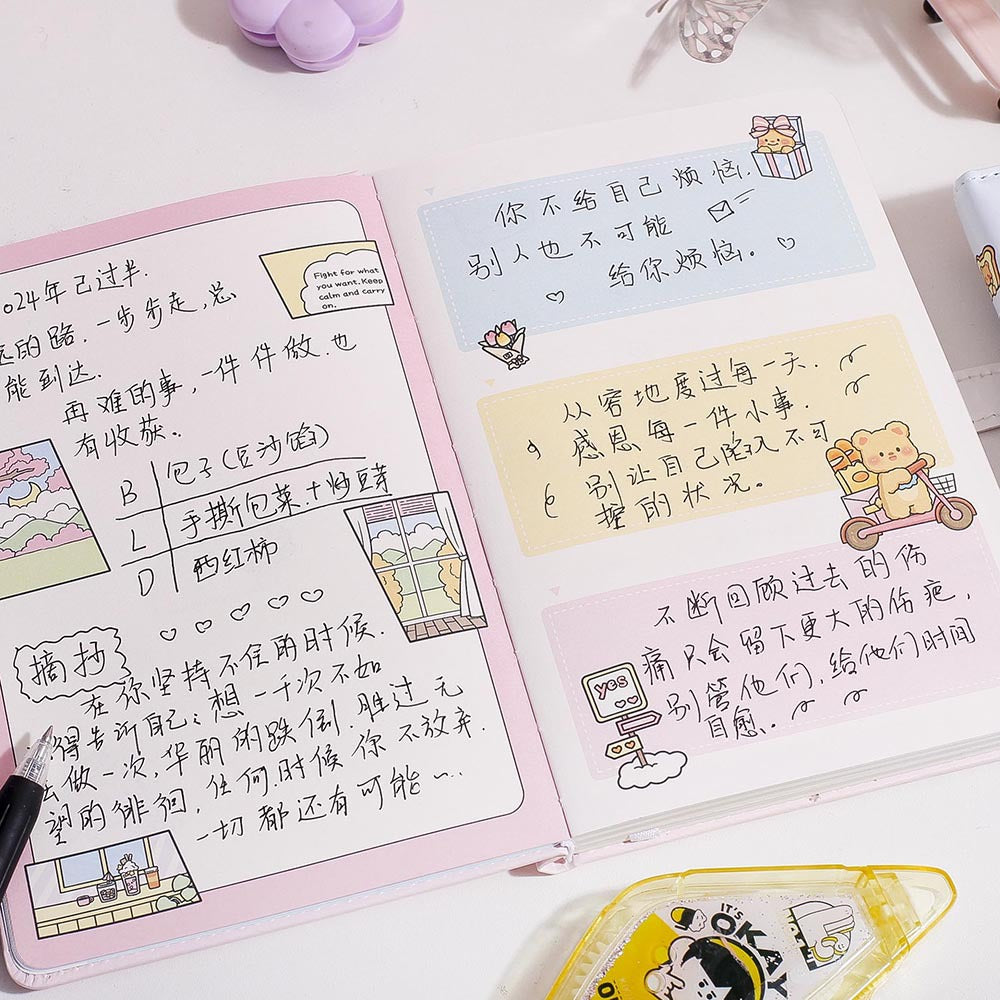 024年已过半.
远的路.一步步走,总
能到达.
再难的事,一件件做.也
有收获。
Fight for what
you want. Keep
calm and carry
on.
B 包子(豆沙馅)
L 手撕包菜.+炒豆芽
D 西红柿
摘抄
在你坚持不住的时候.
得告诉自己:想一千次不如
去做一次,华丽的跌倒.胜过无
望的徘徊,任何时候你不放弃.
一切都还有可能~..
你不给自己烦恼.
别人也不可能
给你烦恼。
从容地度过每一天.
感恩每一件小事.
别让自己陷入不可
控的状况。
不断回顾过去的伤
痛只会留下更大的伤疤,
别管他们,给他们时间
自愈.
yes
IT'S
OKAY